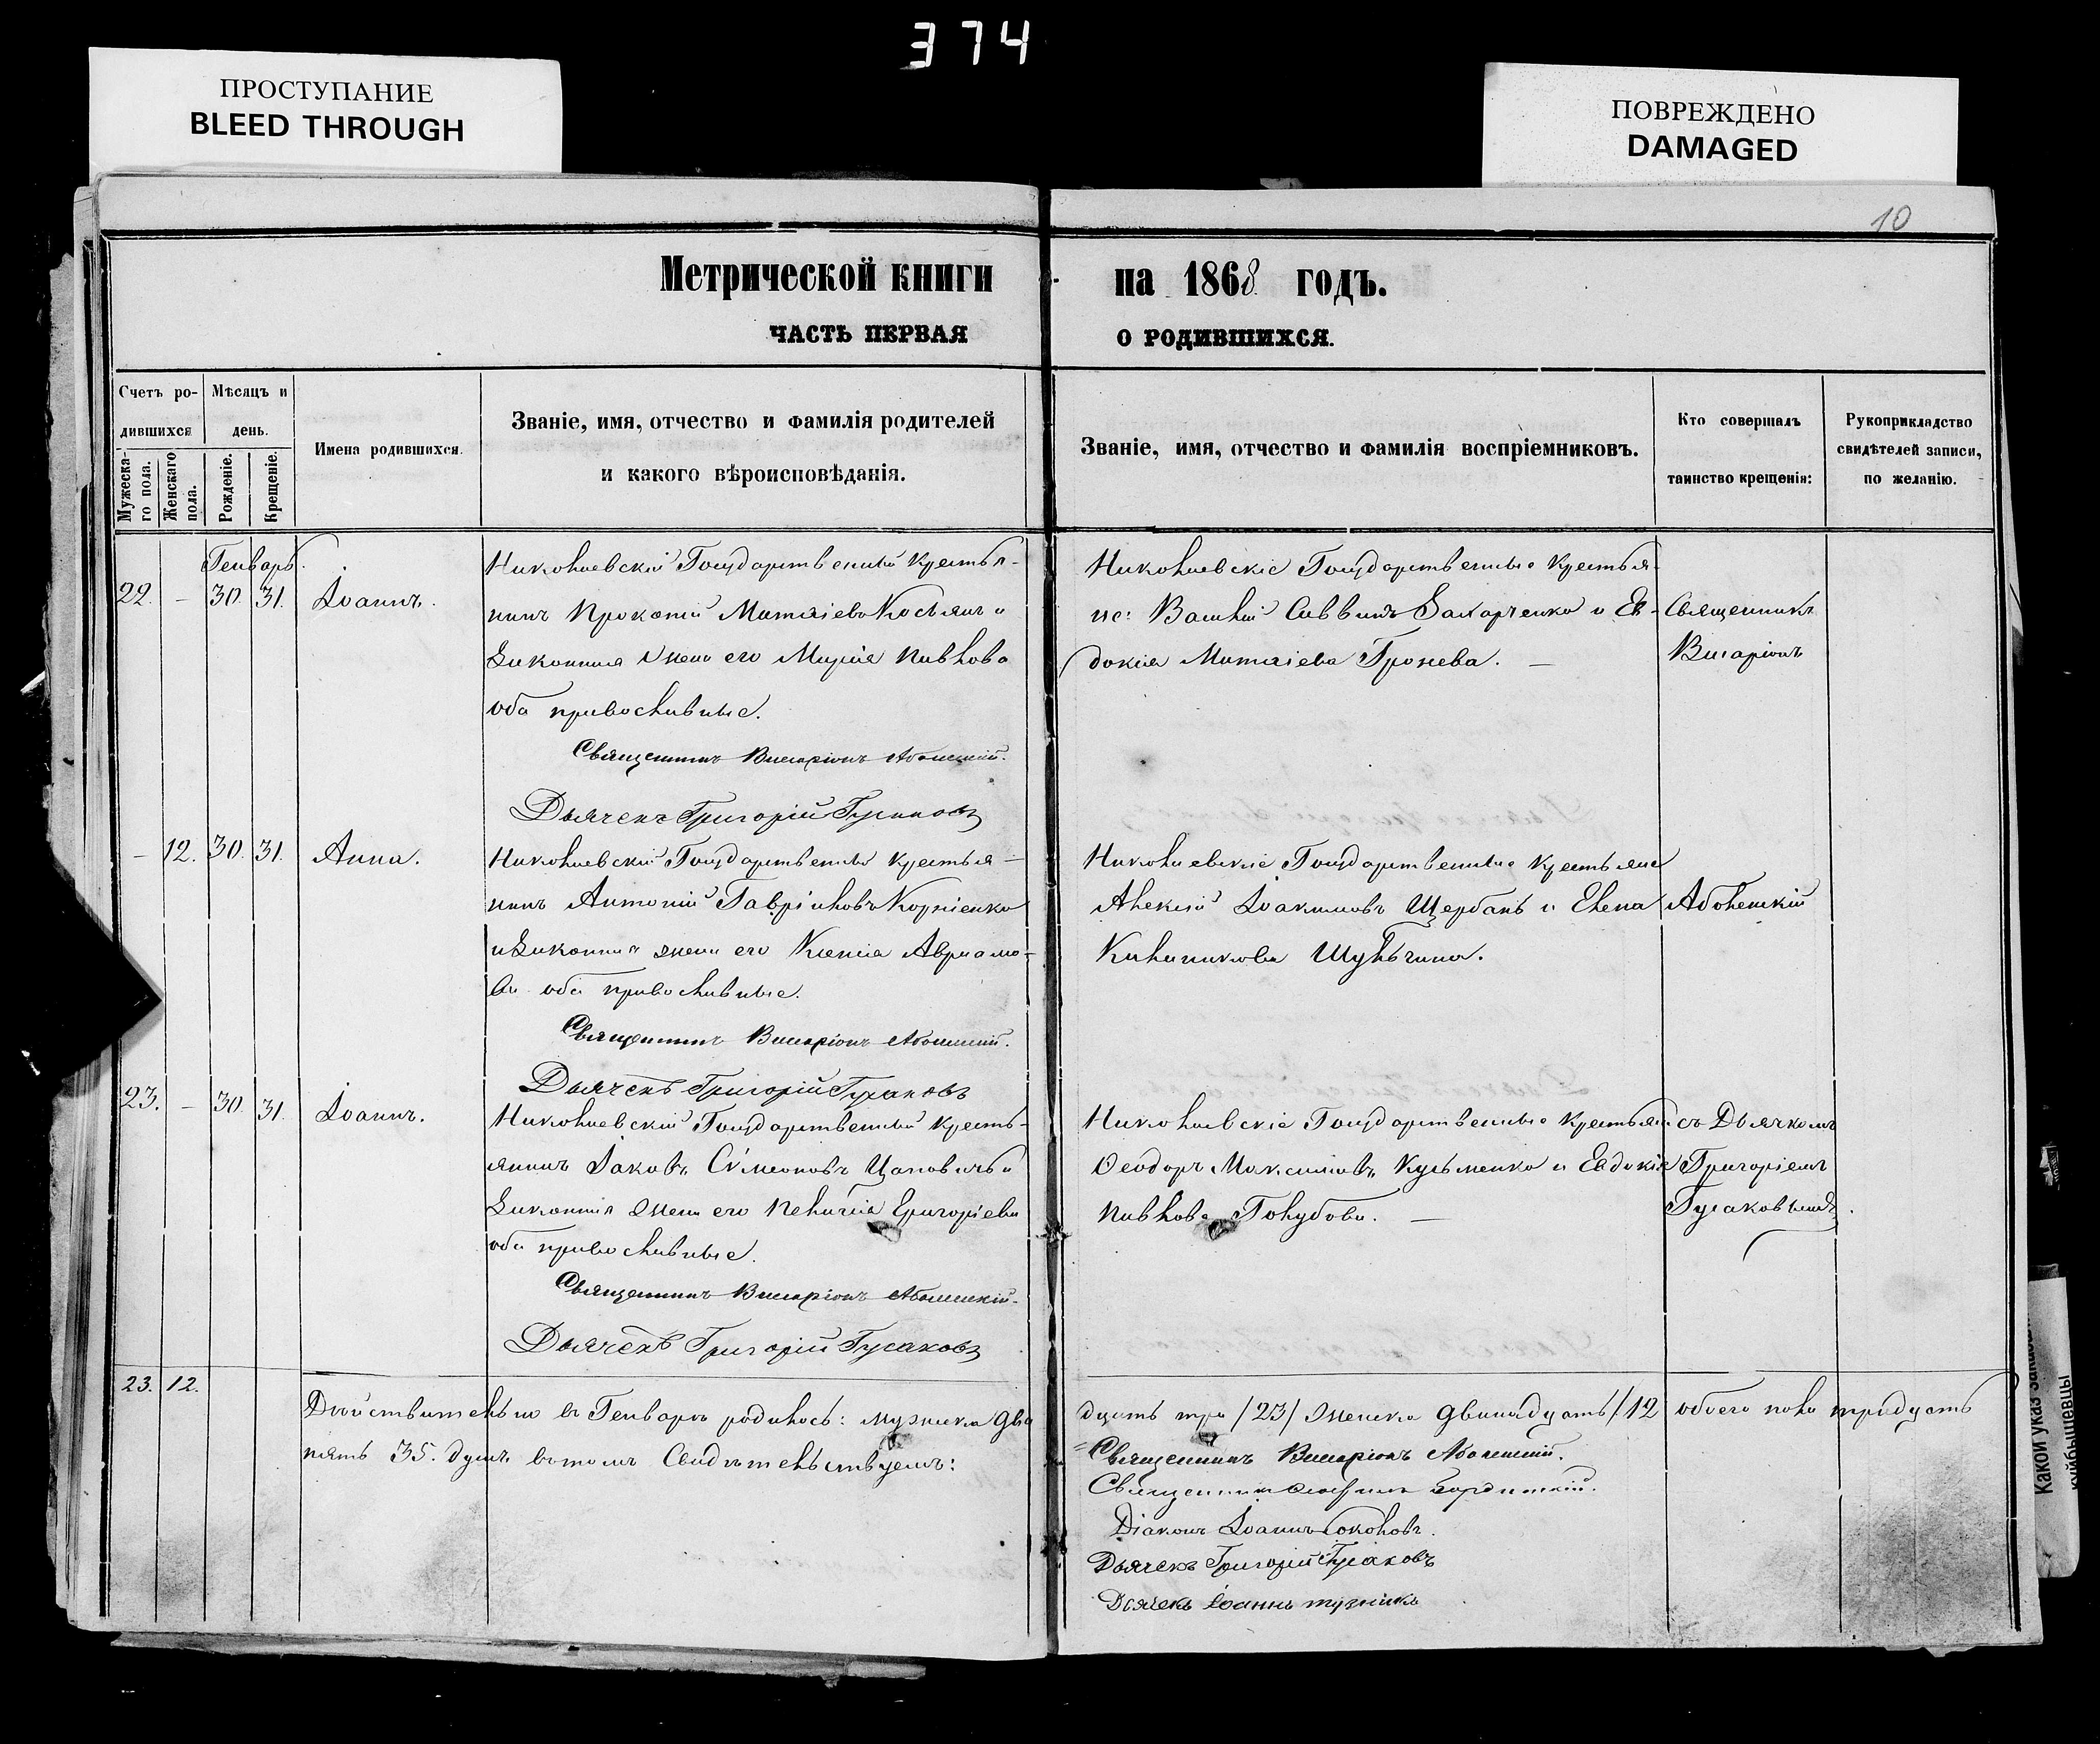 374
ПРОСТУПАНИЕ
BLEED THROUGH
ПОВРЕЖДЕНО
DAMAGED
10
Метрической книги на 1868 годъ.
ЧАСТЬ ПЕРВАЯ О РОДИВШИХСЯ.
Счетъ ро-
дившихся
Мужеска-
го пола.
Женскаго
пола.
Мѣсяцъ и
день.
Рожденіе.
Крещеніе.
Имена родившихся.
Званіе, имя, отчество и фамилія родителей
и какого вѣроисповѣданія.
Званіе, имя, отчество и фамилія воспріемниковъ.
Кто совершалъ
таинство крещенія:
Рукоприкладство
свидѣтелей записи,
по желанію.
Генварь.
22. – 30. 31. Іоаннъ.
Николаевскій Государственный крестья-
нинъ Прокопій Матѳіевъ и
Законная жена его Марія Павлова
оба православные.
Священникъ Виссаріонъ
Дьячекъ Григорій Гусаковъ
Николаевскіе Государственные крестья-
не: Савинъ Захарченко и Ев-
докія Матѳіева
Священникъ
Висаріонъ
– 12. 30. 31. Анна.
Николаевскій Государственный крестья-
нинъ Антоній Гавріиловъ Корніенко
и Законная жена его Ксенія Авраамо-
ва оба православные.
Священникъ Виссаріонъ
Дьячекъ Григорій Гусаковъ
Николаевскіе Государственные крестьяне
Алексій Іоакимовъ Щербакъ и Елена
Каллиникова Шульгина.
23. – 30. 31. Іоаннъ.
Николаевскій Государственный кресть-
янинъ Іаковъ Сѵмеоновъ и
Законная жена его Пелагія Григоріева
оба православные.
Священникъ Виссаріонъ
Дьячекъ Григорій Гусаковъ
Николаевскіе Государственные крестьяне
Ѳеодоръ Максимовъ Кузьменко и Евдокія
Павлова Голубова.
съ Дьячкомъ
Григоріемъ
Гусаковымъ.
23. 12.
Дѣйствительно въ Генварѣ родилось: мужеска два
дцать три /23/ женска двинадцать /12 обоего пола тридцать
пять 35. душъ въ томъ Свидѣтельствуемъ:
Священникъ Виссаріонъ
Священникъ
Діаконъ Іоаннъ Соколовъ.
Дьячекъ Григорій Гусаковъ
Дьячекъ Іоаннъ
Какой указ
куйбышевцы